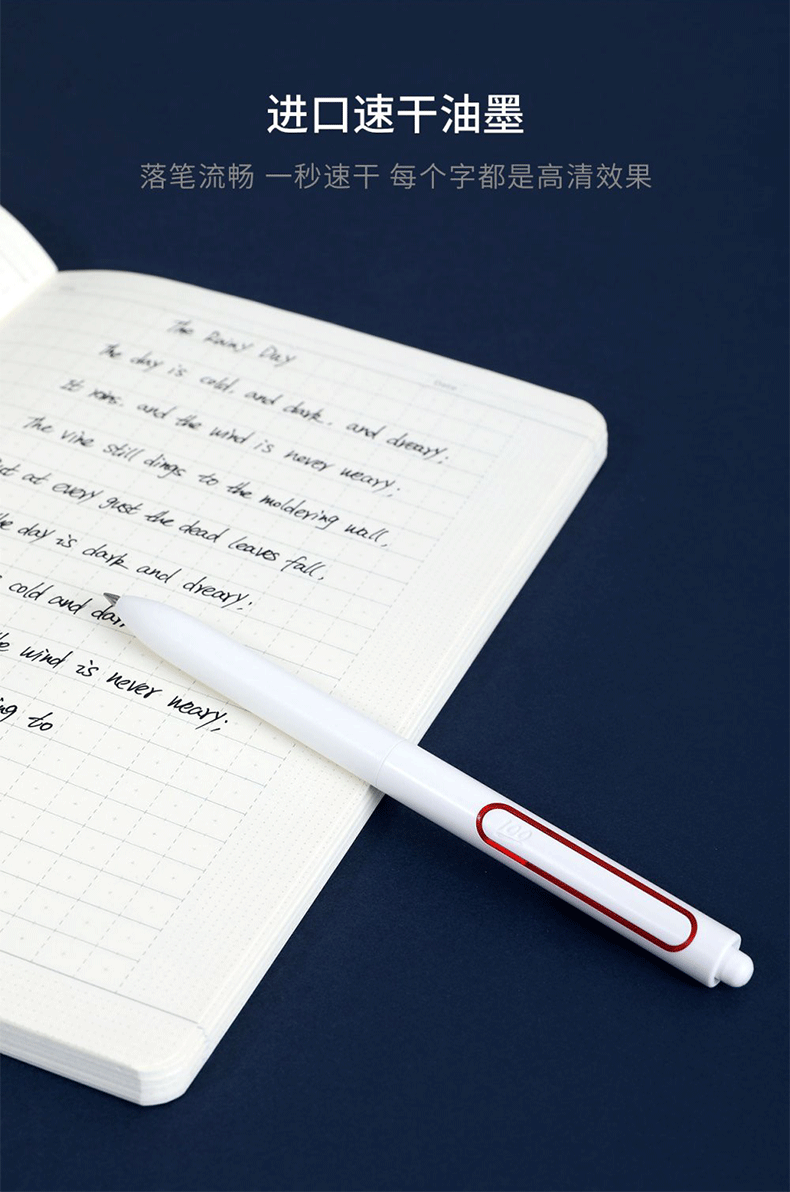 进口速干油墨
落笔流畅 一秒速干 每个字都是高清效果
The Rainy Day
Date
The day is cold, and dark, and dreary;
It rains, and the wind is never weary;
The vine still clings to the moldering wall,
at every gust the dead leaves fall,
day is dark and dreary;
cold and dar
wind is never weary;
to
100